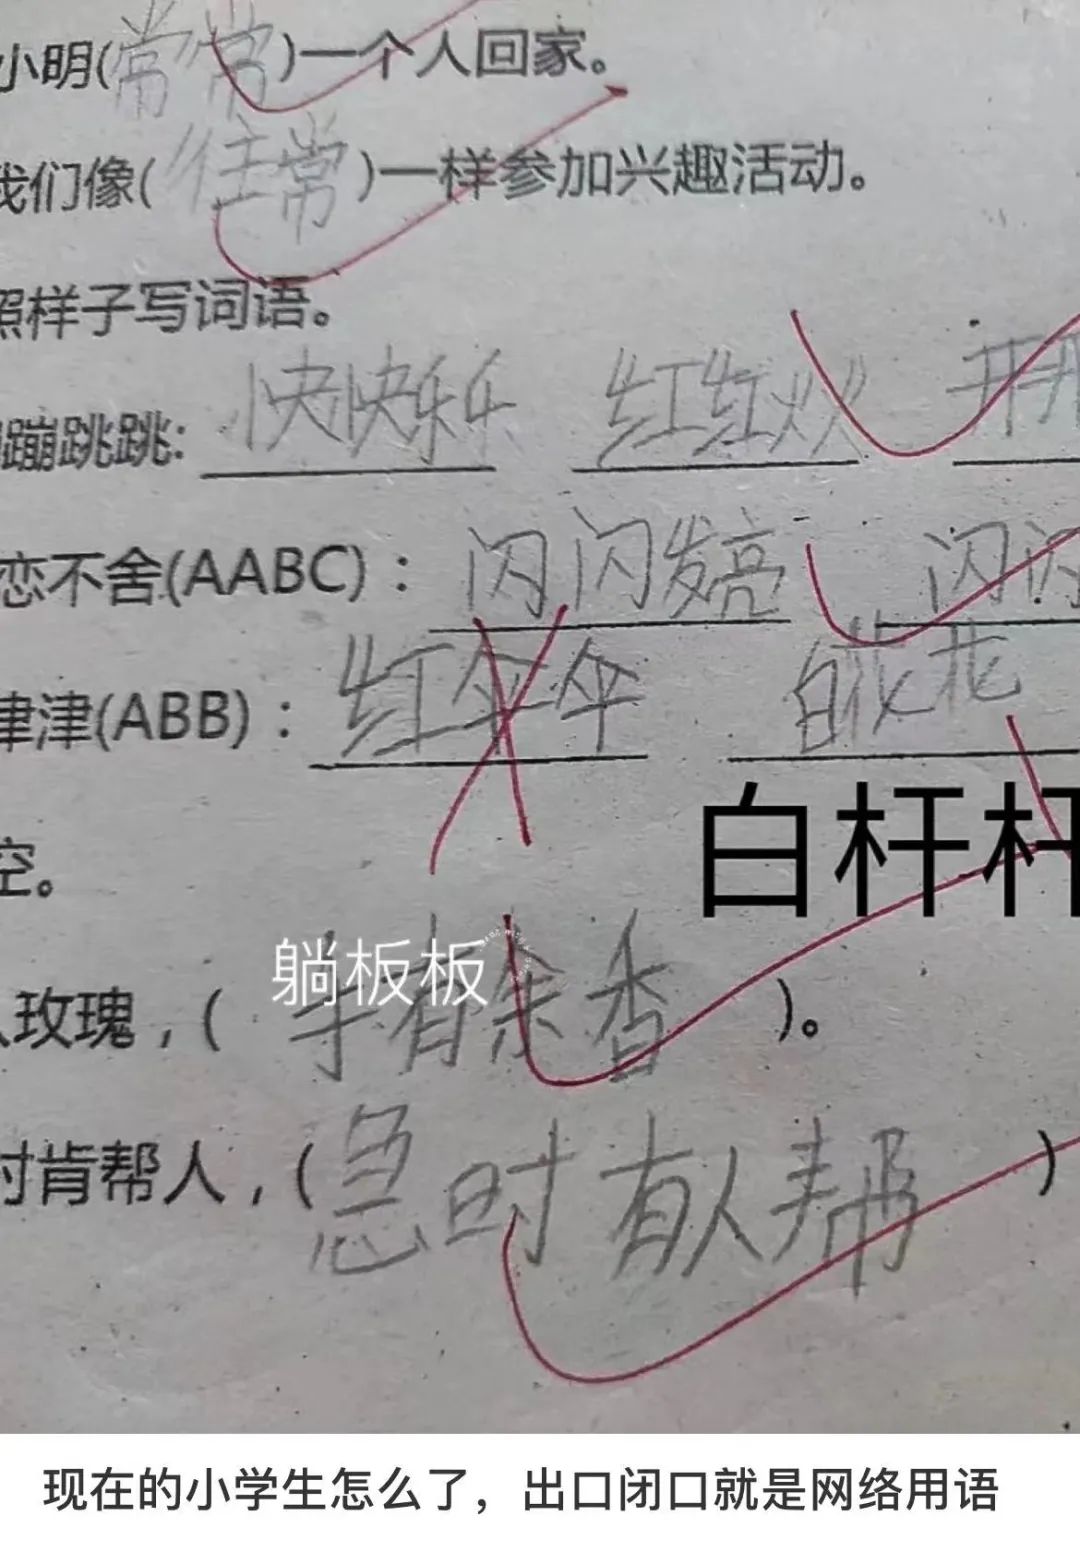 小明(常常)一个人回家。
我们像(往常)一样参加兴趣活动。
照样子写词语。
蹦跳跳: 快快乐乐 红红火火 开开
恋不舍(AABC)：闪闪发亮 闪闪
津津(ABB)：红伞伞 白花花
白杆杆
空。
躺板板
人玫瑰，(手有余香)。
时肯帮人，(急时有人帮)
现在的小学生怎么了，出口闭口就是网络用语